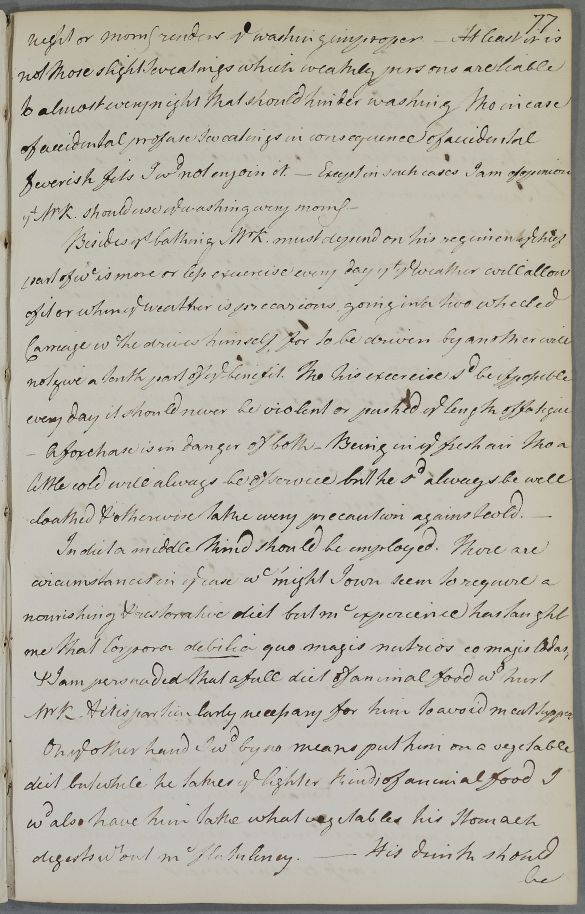 77
night or morng renders ye washing improper — At least it is
not those slight sweatings which weakly persons are liable
to almost every night that should hinder washing tho in case
of accidental profuse sweatings in consequence of accidental
feverish fits I wd not enjoin it. — Except in such cases I am of opinion
yt Mr K. should use ye washing every morng —
Besides ye bathing Mr K. must depend on his regimen ye chief
part of wc is more or less exercise every day yt ye weather will allow
of it or when ye weather is precarious, going in a two wheeled
Carriage wc he drives himself, for to be driven by another will
not give a tenth part of ye benefit. Tho his exercise sd be if possible
every day it should never be violent or pushed ye length of fatigue
— A foxchase is in danger of both — Being in ye fresh air tho a
little cold will always be of service but he sd always be well
cloathed & otherwise take every precaution against cold. —
In diet a middle kind should be employed. There are
circumstances in ye case wc might I own seem to require a
nourishing & restorative diet but mc experience has taught
me that Corpora debilia quo magis nutries eo magis lædas,
& I am persuaded that a full diet of animal food wd hurt
Mr K. & it is particularly necessary for him to avoid meat suppers
On ye other hand I wd by no means put him on a vegetable
diet but while he takes ye lighter kinds of animal food I
wd also have him take what vegetables his Stomach
digests wt out mc flatulency. — His drink should
be